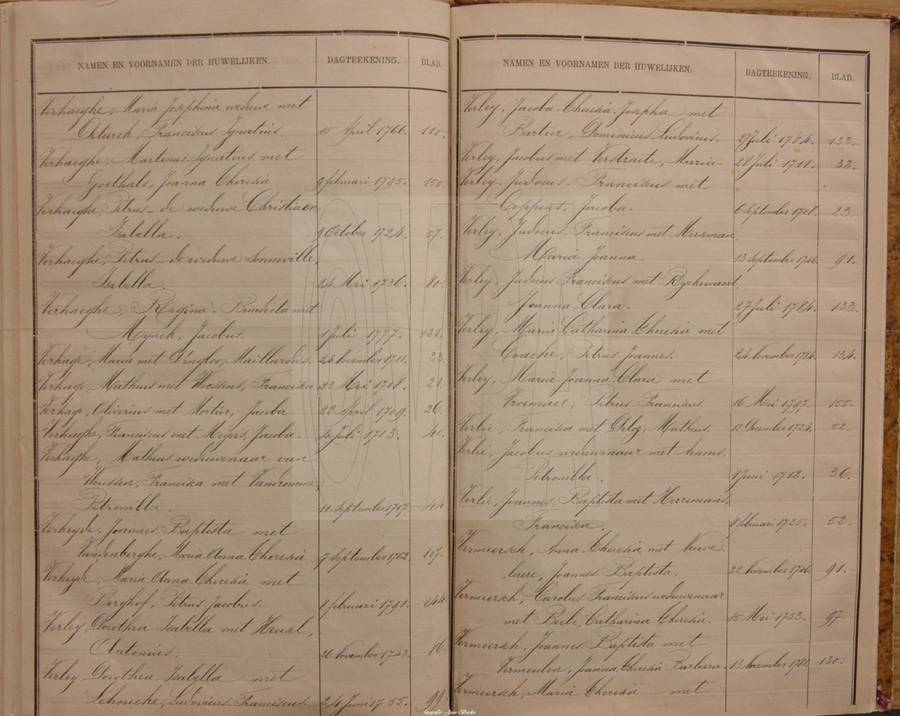 NAMEN EN VOORNAMEN DER HUWELIJKEN. DAGTEEKENING. BLAD.
Verhaeghe, Maria Josephina weduwe met
Franciscus Ignatius 15 April 1766. 110.
Verhaeghe, Martinus Ignatius met
Goethals, Joanna Theresia 9 februari 1795. 150.
Verhaeghe, Petrus de weduwe Christiaen
Isabella. 9 October 1724. 57.
Verhaeghe, Petrus de weduwe Sonneville,
Isabella. 24 Mei 1736. 80.
Verhaeghe, Regina met
Jacobus. 1 Juli 1777.
Verhage, Maria met 24 November 1711. 33
Verhage, Matheus met Wessens, Francisca 22 Mei 1708. 21.
Verhage, Oliverius met Mortier, Jacoba 22 April 1709. 26.
Verhaeghe, Franciscus met Jacoba. Juli 1713. 40.
Verhaeghe, Matheus weduwenaar van
Francisca met
Petronilla. 11 September 1717. 44.
Joannes Baptista met
Vandenberghe, Maria Anna Theresia 9 September 1762. 107.
Maria Anna Theresia met
Berghof, Petrus Jacobus. 8 februari 1791. 144.
Verley, Dorothea Isabella met
Antonius. 26 November 1743.
Verley, Dorothea Isabella met
Ludovicus Franciscus 24 Juni 1755. 99.
NAMEN EN VOORNAMEN DER HUWELIJKEN. DAGTEEKENING. BLAD.
Verley, Jacoba Theresia Josepha met
Bartier, Dominicus Ludovicus. 27 Juli 1784. 133.
Verley, Jacobus met Verstraete, Maria 28 Juli 1711. 32.
Verley, Judocus Franciscus met
Coppens, Jacoba. September 1708. 23.
Verley, Judocus Franciscus met
Maria Joanna. 13 September 91.
Verley, Judocus Franciscus met Ryckewaert
Joanna Clara. 27 Juli 1784. 133.
Verley, Maria Catharina Theresia met
Petrus Joannes. 24 November 1784. 134.
Verley, Maria Joanna Clara met
Petrus Franciscus. 16 Mei 1797. 155.
Verlie, Francisca met Matheus. 12 December 1724. 52.
Verlie, Jacobus weduwenaar met
Petronilla. 1 Juni 1712. 36.
Verlie, Joannes Baptista met Heremans,
Francisca. 8 februari 1725. 52.
Vermeersch, Anna Theresia met
Joannes Baptista. 22 November 91.
Vermeersch, Carolus Franciscus weduwenaar
met Catharina Theresia. 15 Mei 1753. 97.
Vermeersch, Joannes Baptista met
Vermeulen, Joanna Theresia Barbara. 13 November 130.
Vermeersch, Maria Theresia met